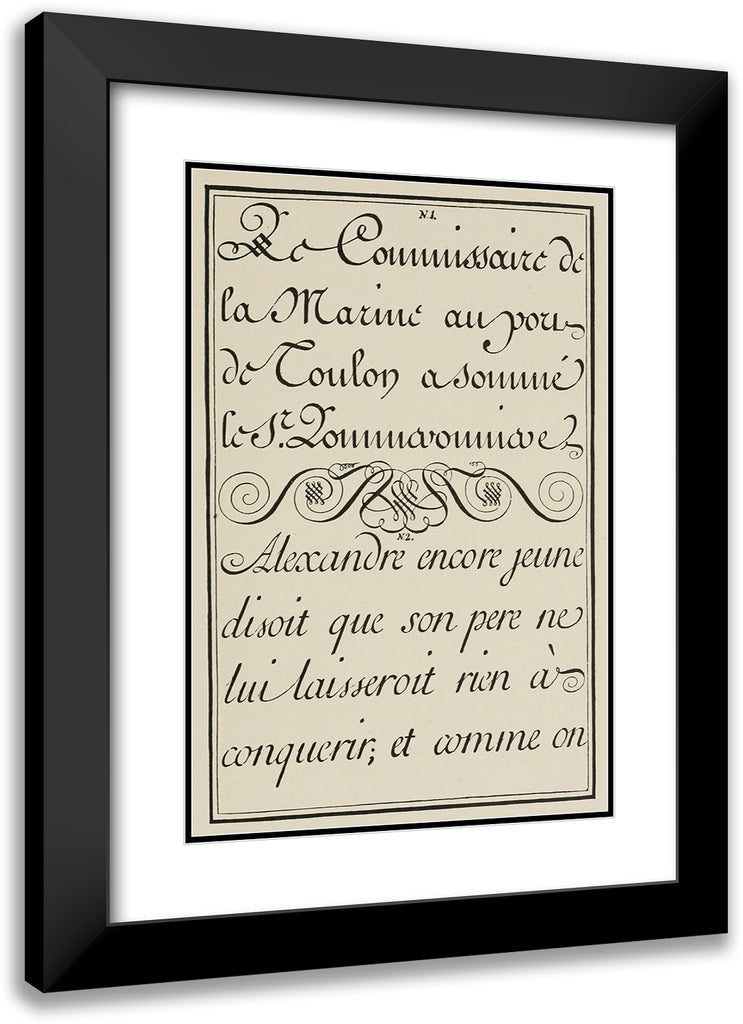 N.1.
Le Commissaire de
la Marine au port
de Toulon a sommé
le Sr.
N2.
Alexandre encore jeune
disoit que son pere ne
lui laisseroit rien à
conquerir; et comme on